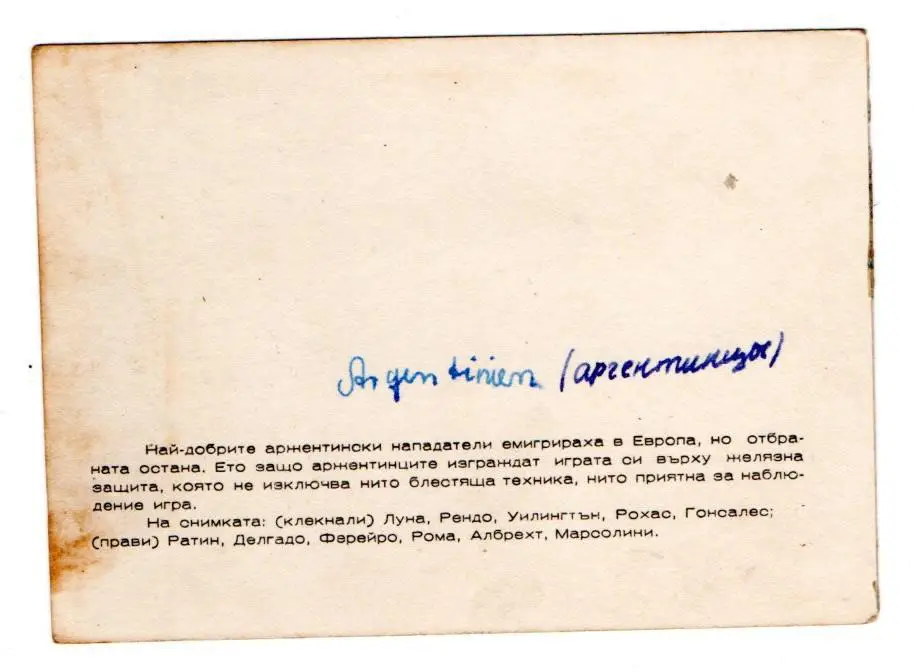 Argentinien (аргентинцы)
Най-добрите аржентински нападатели емигрираха в Европа, но отбра-
ната остана. Ето защо аржентинците изграждат играта си върху желязна
защита, която не изключва нито блестяща техника, нито приятна за наблю-
дение игра.
На снимката: (клекнали) Луна, Рендо, Уилингтън, Рохас, Гонсалес;
(прави) Ратин, Делгадо, Ферейро, Рома, Албрехт, Марсолини.